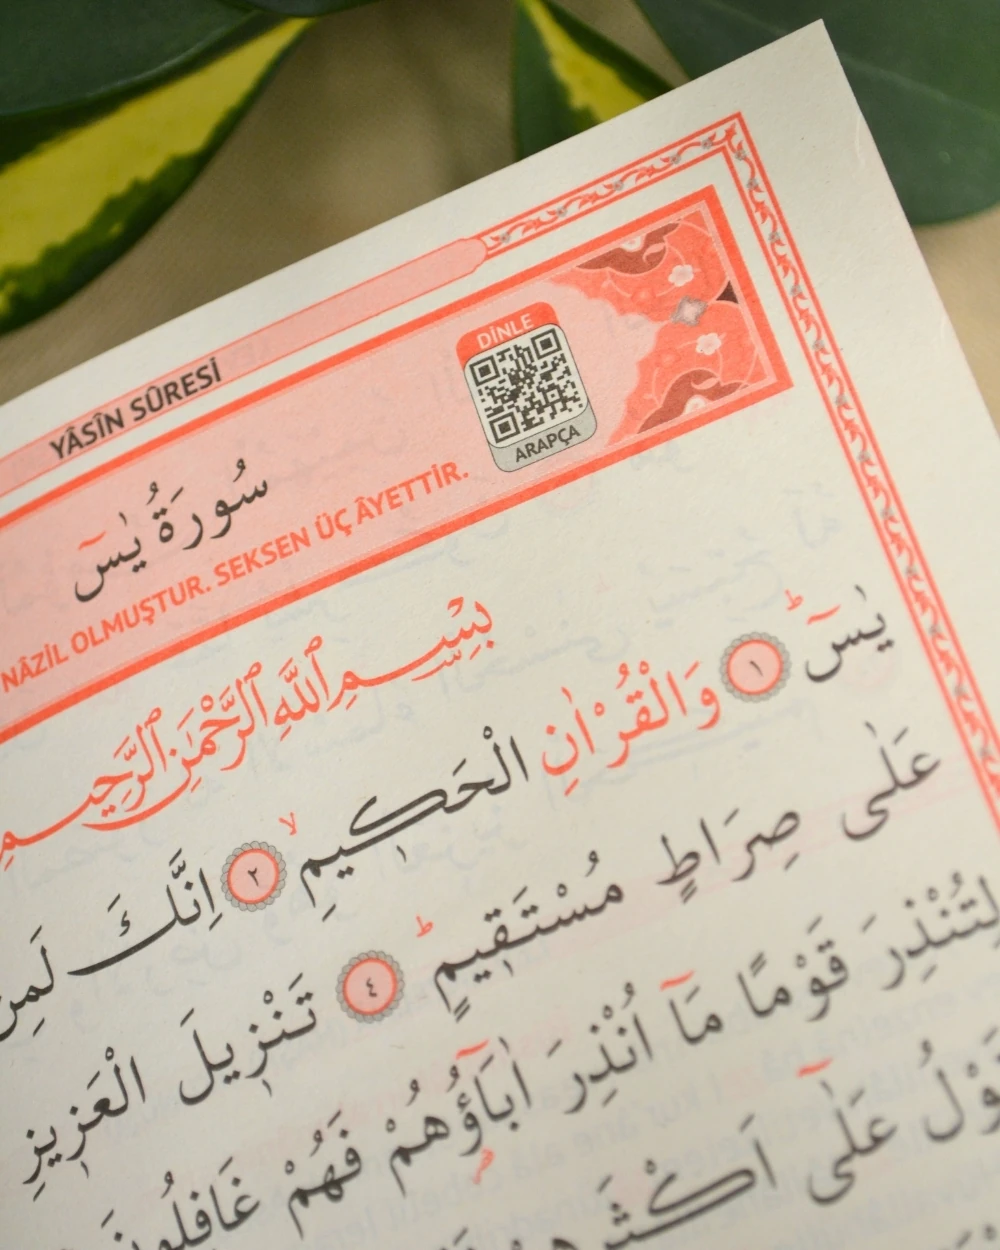 YÂSÎN SÛRESİ
DİNLE
ARAPÇA
سُورَةُ يٰسٓ
NÂZİL OLMUŞTUR. SEKSEN ÜÇ ÂYETTİR.
بِسْمِ اللّٰهِ الرَّحْمٰنِ الرَّحِيمِ
يٰسٓ ۚ ﴿١﴾ وَالْقُرْاٰنِ الْحَكِيمِ ۙ ﴿٢﴾ اِنَّكَ لَمِنَ
عَلٰى صِرَاطٍ مُسْتَقِيمٍ ۜ ﴿٤﴾ تَنْزِيلَ الْعَزِيزِ
لِتُنْذِرَ قَوْمًا مَٓا اُنْذِرَ اٰبَٓاؤُ۬هُمْ فَهُمْ غَافِلُونَ
عَلٰٓى اَكْثَرِهِمْ